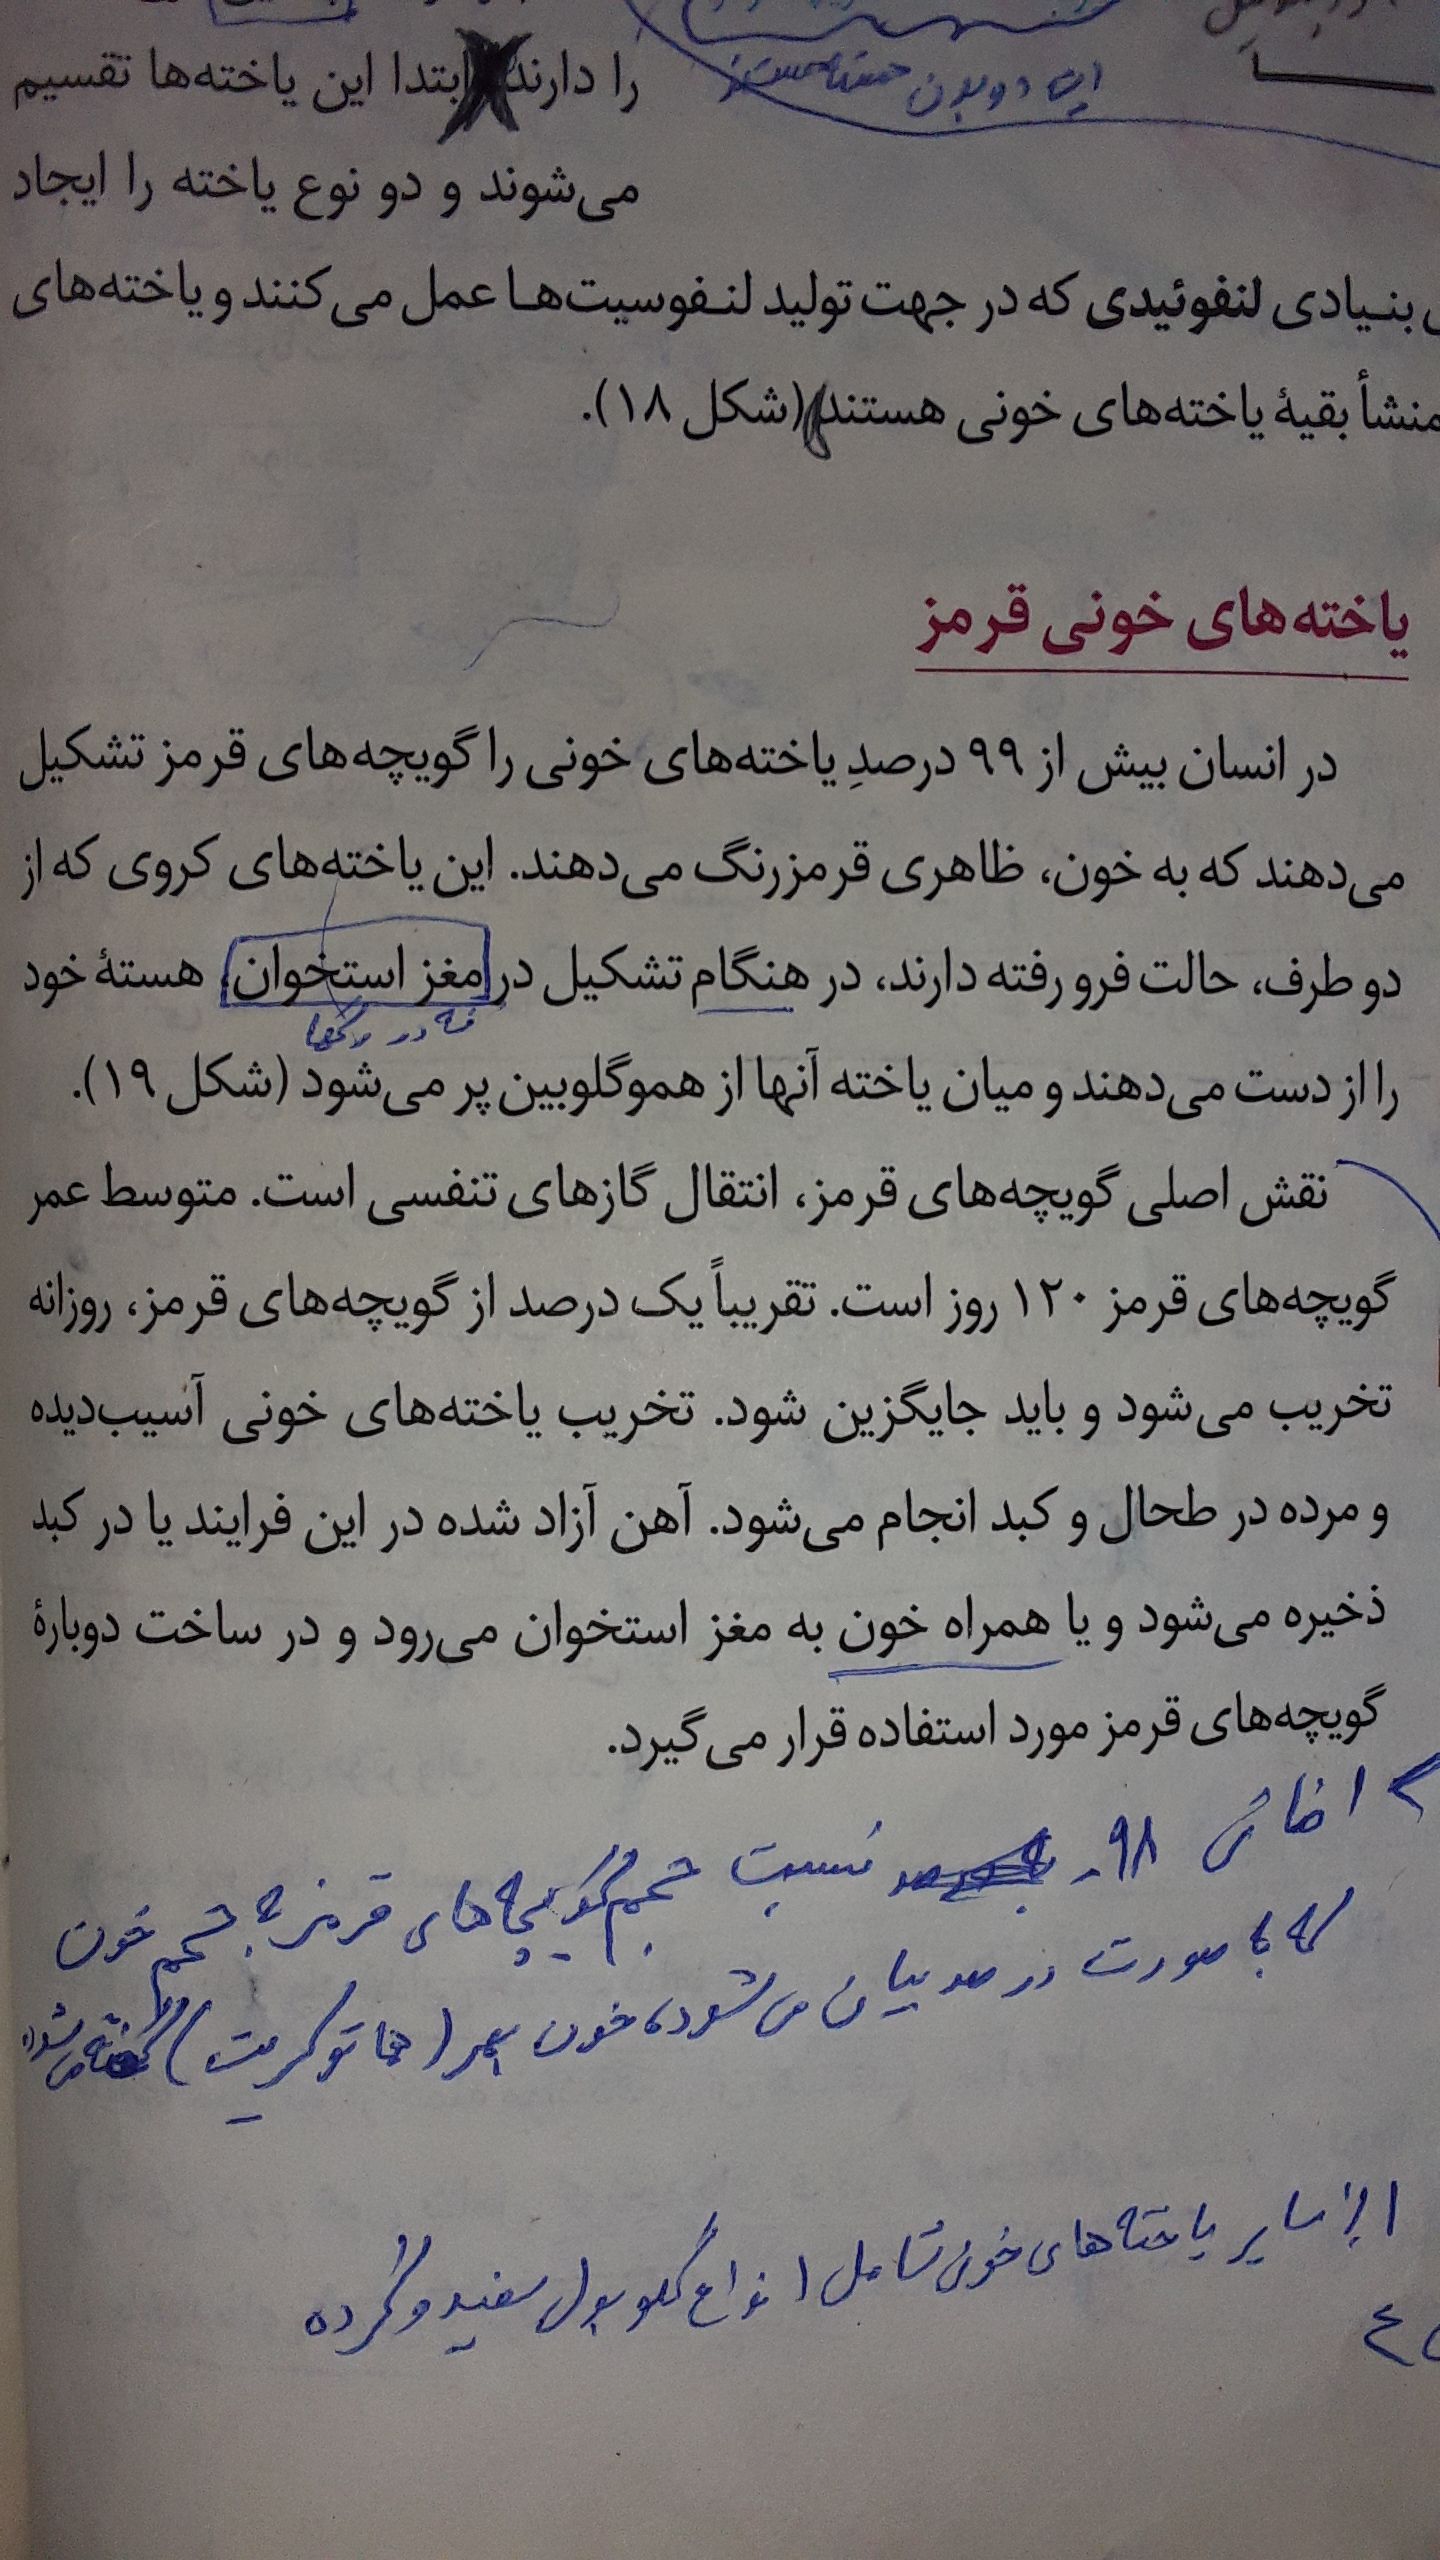 این دو بدون هسته هستند
را دارند ابتدا این یاخته‌ها تقسیم
می‌شوند و دو نوع یاخته را ایجاد
بنیادی لنفوئیدی که در جهت تولید لنفوسیت‌ها عمل می‌کنند و یاخته‌های
منشأ بقیهٔ یاخته‌های خونی هستند (شکل ۱۸).
یاخته‌های خونی قرمز
در انسان بیش از ۹۹ درصدِ یاخته‌های خونی را گویچه‌های قرمز تشکیل
می‌دهند که به خون، ظاهری قرمزرنگ می‌دهند. این یاخته‌های کروی که از
دو طرف، حالت فرو رفته دارند، در هنگام تشکیل در مغز استخوان، هستهٔ خود
نه در رگها
را از دست می‌دهند و میان یاخته آنها از هموگلوبین پر می‌شود (شکل ۱۹).
نقش اصلی گویچه‌های قرمز، انتقال گازهای تنفسی است. متوسط عمر
گویچه‌های قرمز ۱۲۰ روز است. تقریباً یک درصد از گویچه‌های قرمز، روزانه
تخریب می‌شود و باید جایگزین شود. تخریب یاخته‌های خونی آسیب‌دیده
و مرده در طحال و کبد انجام می‌شود. آهن آزاد شده در این فرایند یا در کبد
ذخیره می‌شود و یا همراه خون به مغز استخوان می‌رود و در ساخت دوبارهٔ
گویچه‌های قرمز مورد استفاده قرار می‌گیرد.
اضافی ۹۸ نسبت حجم گویچه‌های قرمز به حجم خون
که به صورت درصد بیان می‌شود، خون بهر (هماتوکریت) گفته می‌شود
سایر یاخته‌های خونی شامل انواع گلوبول سفید و گرده